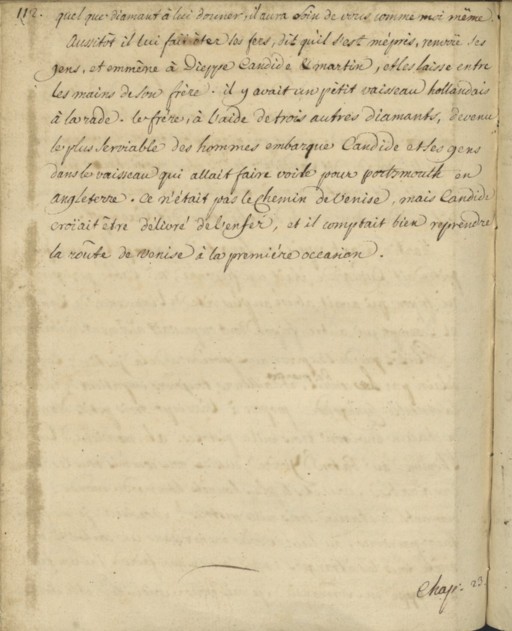 112. quelque diamant à lui donner, il aura soin de vous comme moi même.
Aussitot il lui fait ôter les fers, dit qu'il s'est mépris, renvoïe ses
gens, et emmène à Dieppe Candide & martin, et les laisse entre
les mains de son frère. il y avait un petit vaisseau hollandais
à la rade. le frère, à l'aide de trois autres diamants, devenu
le plus serviable des hommes embarque Candide et ses gens
dans le vaisseau qui allait faire voile pour portsmouth en
angleterre. ce n'était pas le chemin de Venise, mais Candide
croïait être délivré de l'enfer, et il comptait bien reprendre
la route de Venise à la première occasion.
Chap. 23.